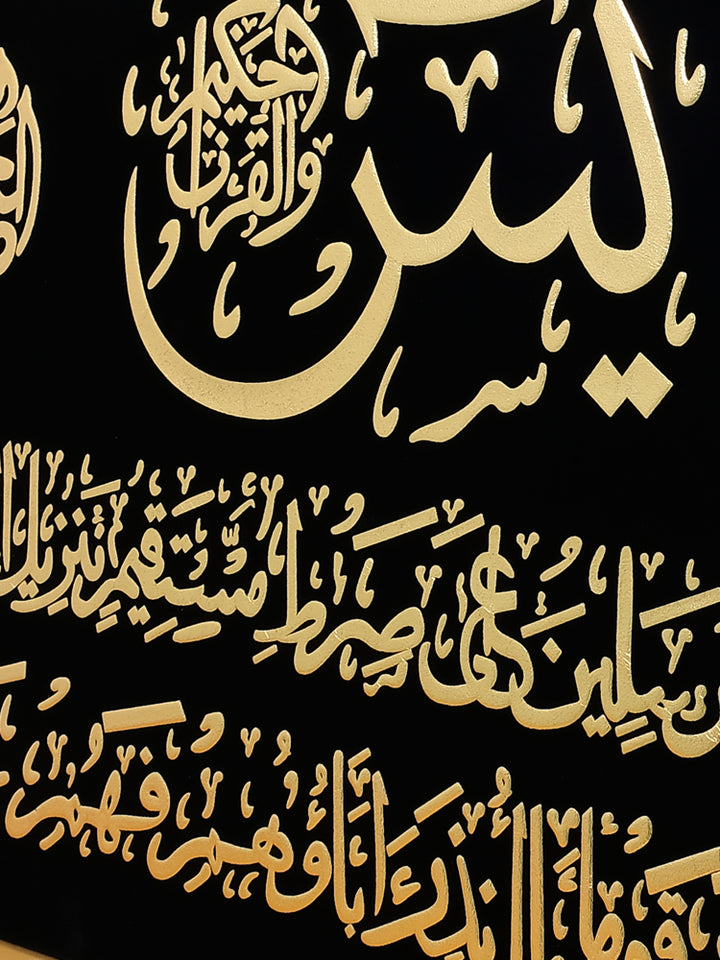 يس
والقرآن الحكيم
سلين على صرط مستقيم تنزيل
قوما ما أنذر اباؤهم فهم